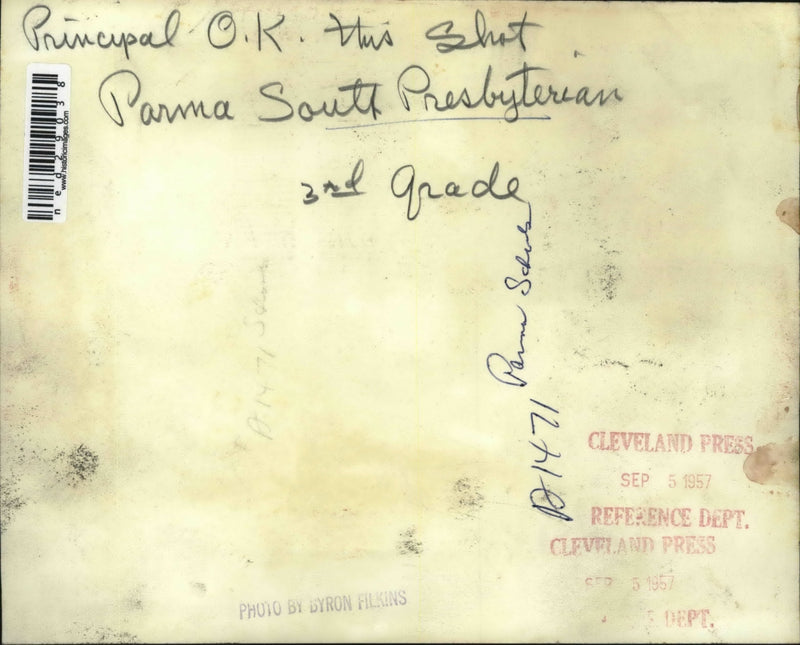 Principal O.K. this shot
Parma South Presbyterian
3rd grade
ned29038
www.historicimages.com
Parma Schools
D1471
D1471
CLEVELAND PRESS
SEP 5 1957
REFERENCE DEPT.
CLEVELAND PRESS
SEP 5 1957
E DEPT.
PHOTO BY BYRON FILKINS